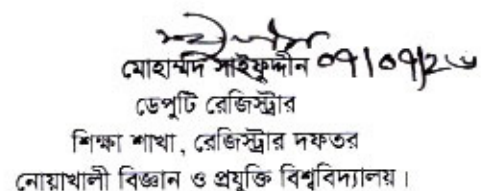 মোহাম্মদ সাইফুদ্দীন ০৭|০৭|২৬
ডেপুটি রেজিস্ট্রার
শিক্ষা শাখা, রেজিস্ট্রার দফতর
নোয়াখালী বিজ্ঞান ও প্রযুক্তি বিশ্ববিদ্যালয়।